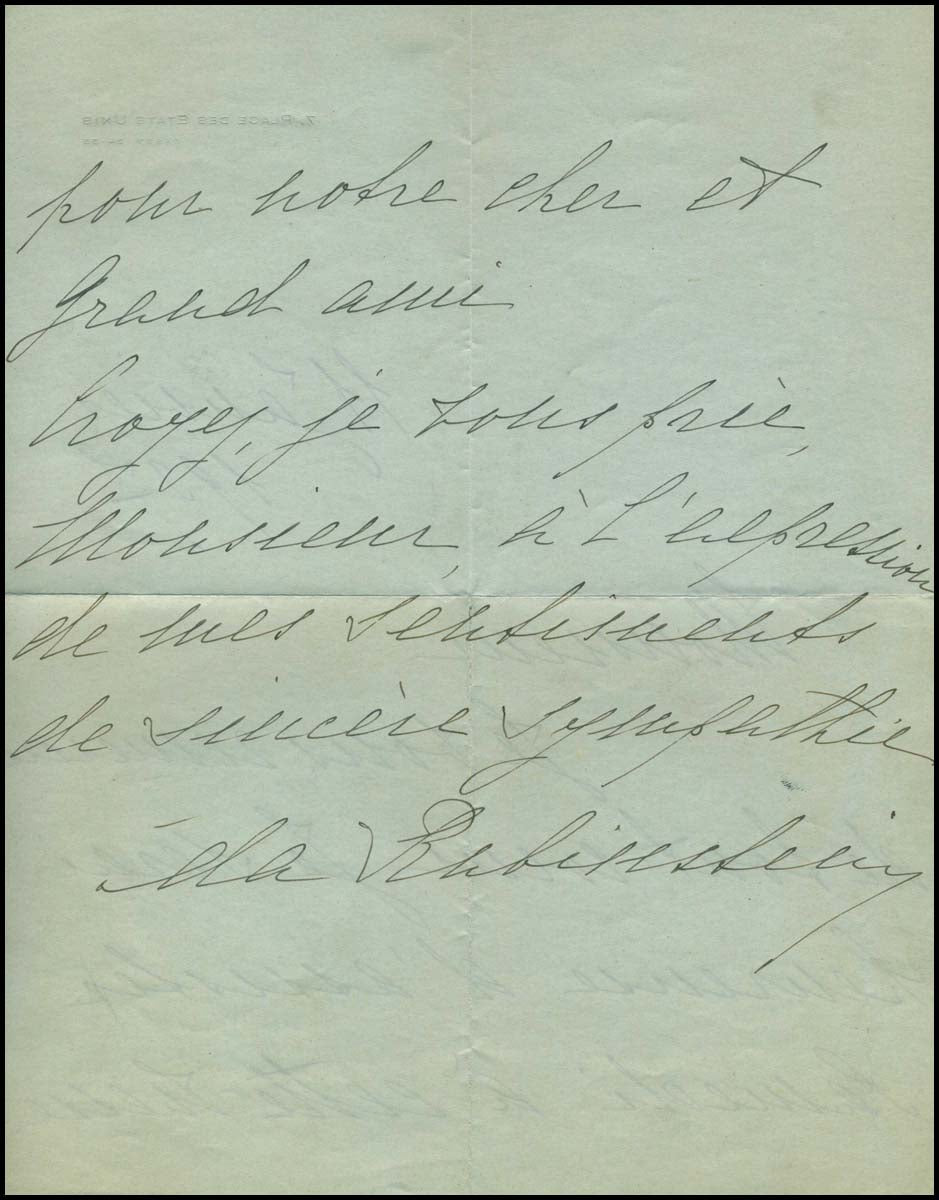 7, PLACE DES ETATS UNIS
pour notre cher et
Grand ami
Croyez, je vous prie,
Monsieur, à l'expression
de mes sentiments
de sincère sympathie
Ida Rubinstein